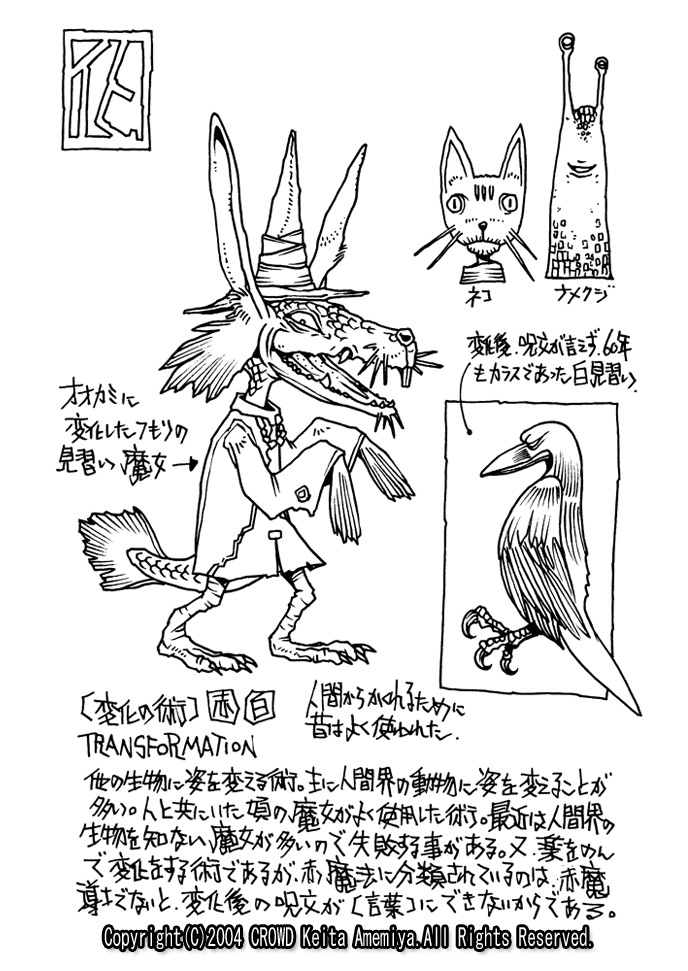 ネコ
ナメクジ
変化後、呪文が言えず、60年
もカラスであった白見習い。
オオカミに
変化したつもりの
見習い魔女→
[変化の術] 赤 白
TRANSFORMATION
人間からかくれるために
昔はよく使われた。
他の生物に姿を変える術。主に人間界の動物に姿を変えることが
多い。人と共にいた頃の魔女がよく使用した術。最近は人間界の
生物を知ない魔女が多いので失敗する事がある。又、薬をのん
で変化をする術であるが、赤魔法に分類されているのは、赤魔
導士でないと、変化後の呪文が[言葉]にできないからである。
Copyright(C)2004 CROWD Keita Amemiya.All Rights Reserved.